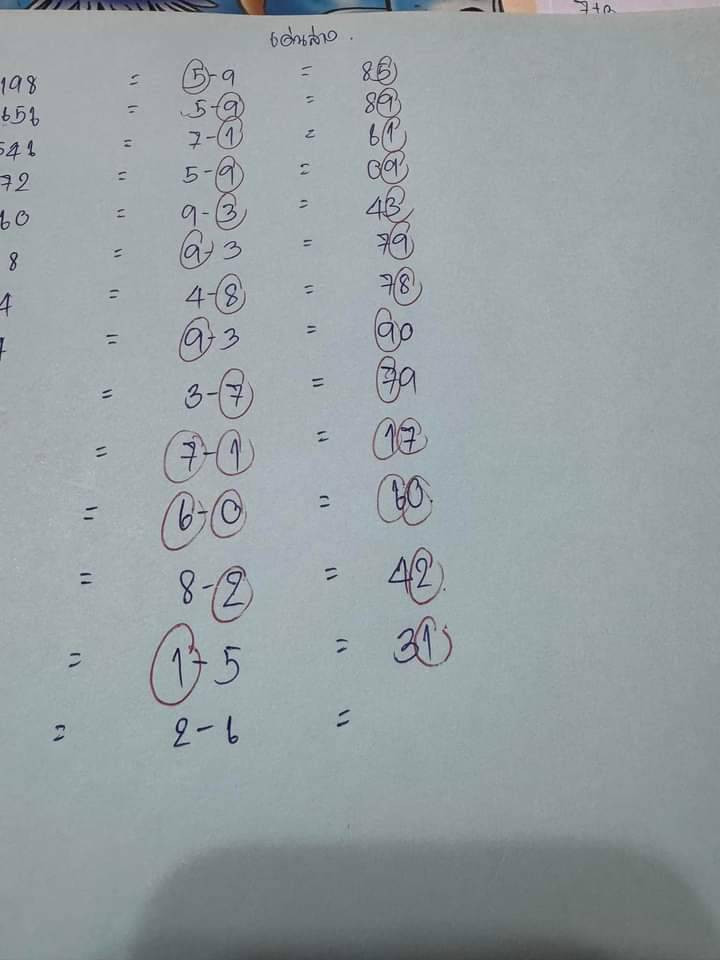 7+ด
เด่นล่าง.
198 = 5-9 = 85
656 = 5-9 = 89
546 = 7-1 = 61
72 = 5-9 = 09
60 = 9-3 = 43
8 = 9-3 = 79
4 = 4-8 = 78
7 = 9-3 = 90
= 3-7 = 79
= 7-1 = 17
= 6-0 = 60.
= 8-2 = 42.
= 1-5 = 31
= 2-6 =